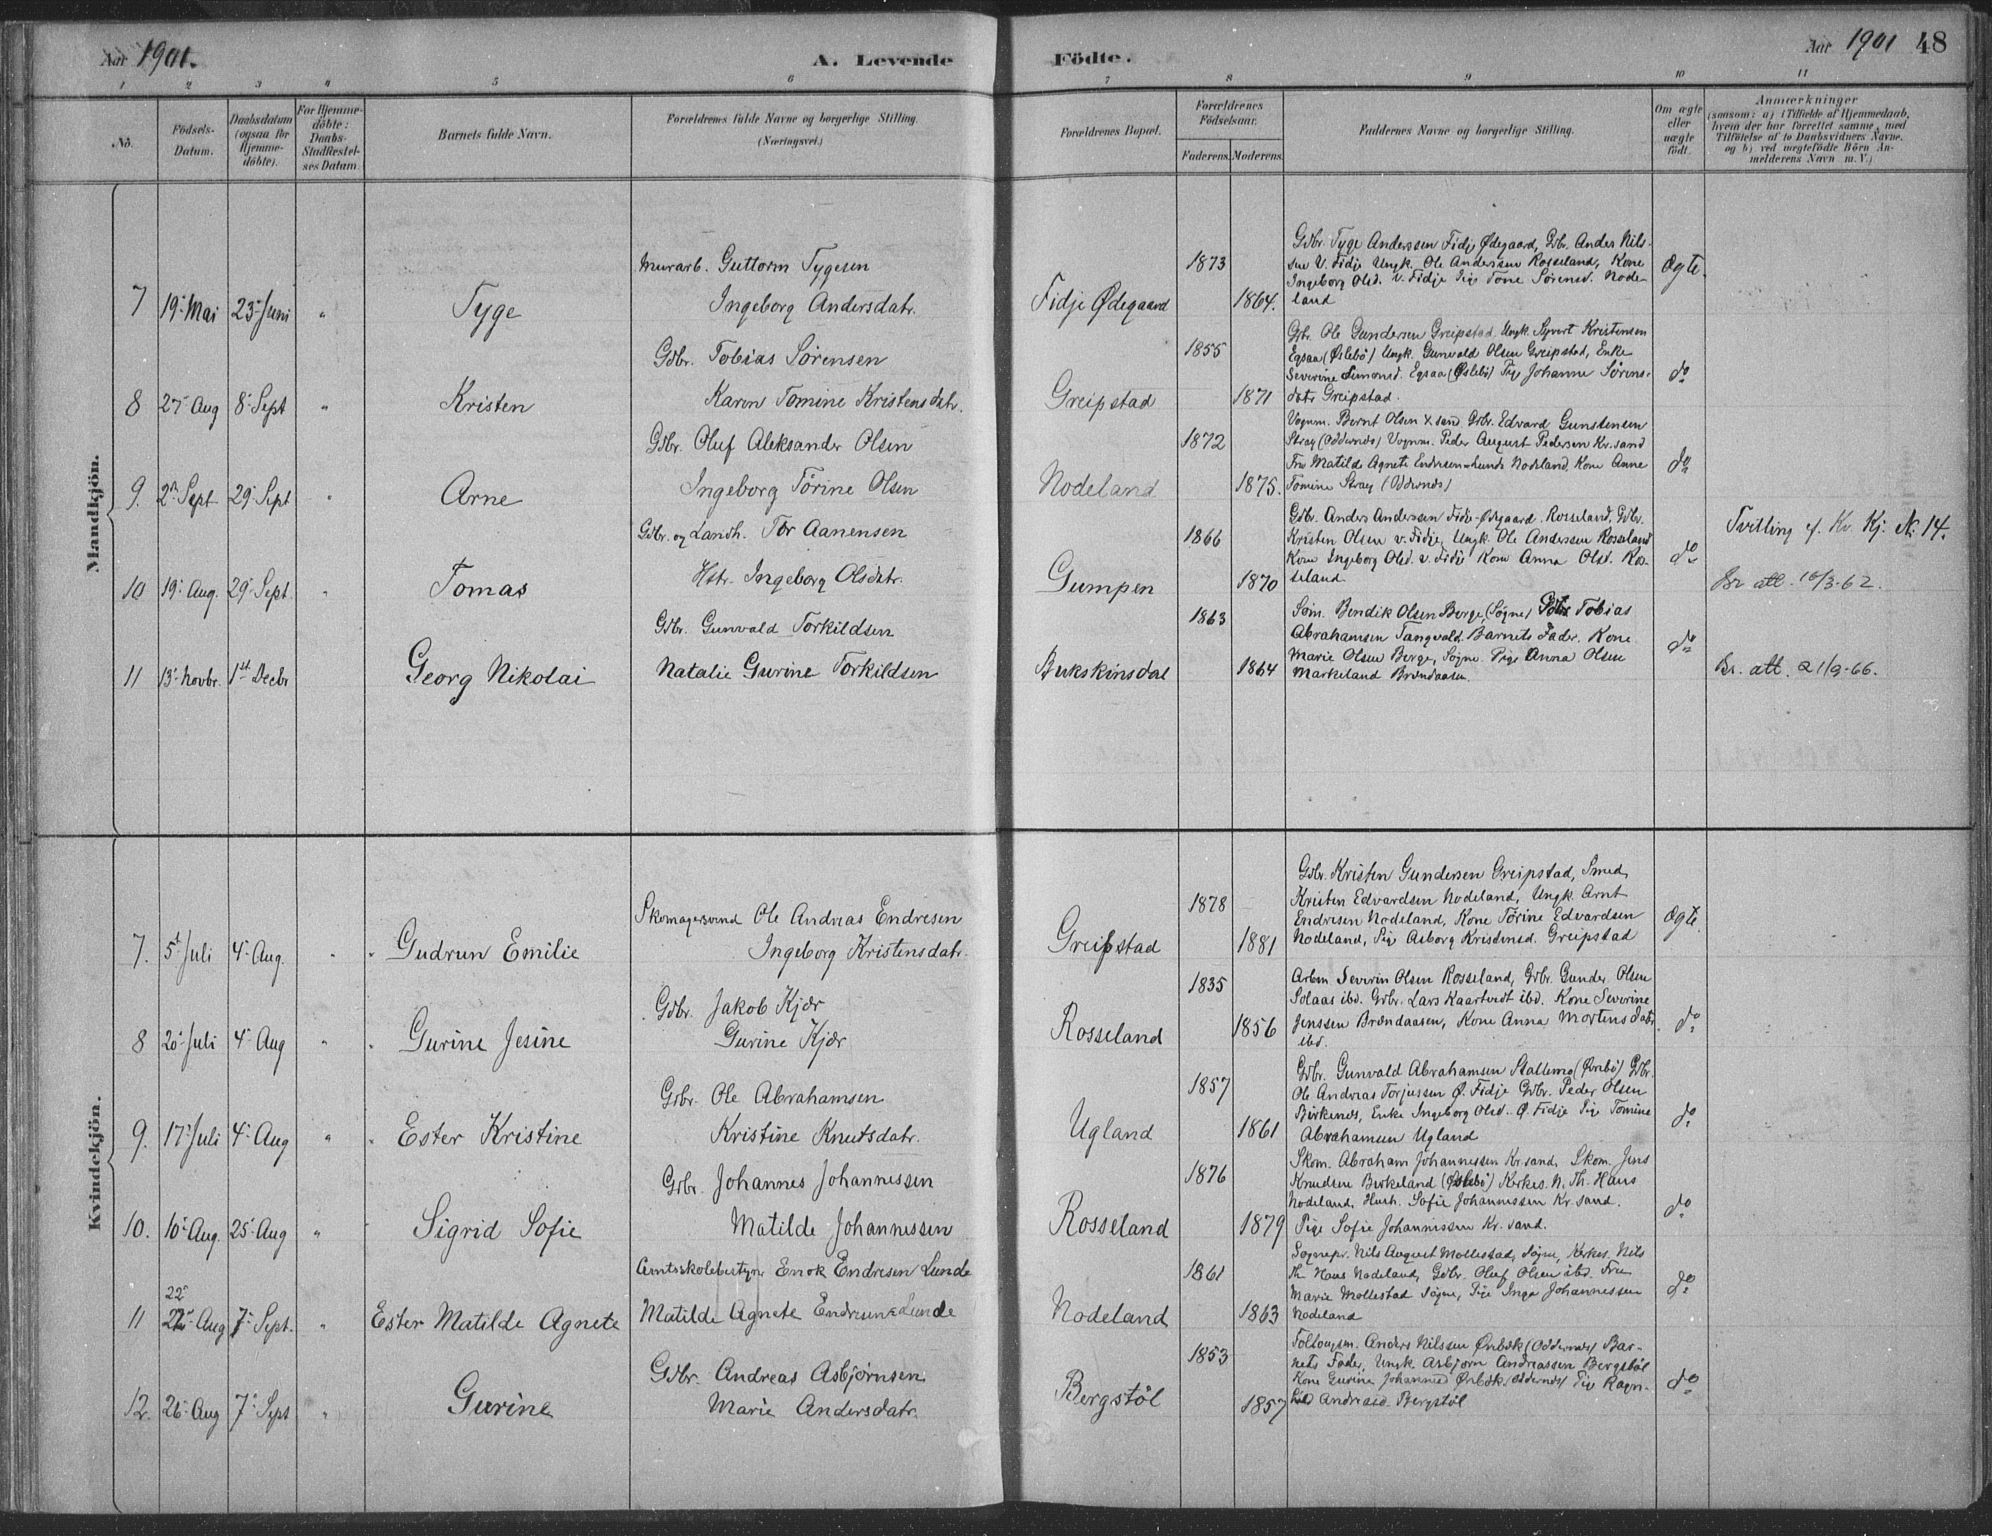 Aar 1901. A. Levende Födte. Aar 1901 48
1 2 3 4 5 6 7 8 9 10 11
No. Födsels-Datum. Daabsdatum (ogsaa for Hjemmedöbte). For Hjemmedöbte: Daabs-Stadfæstelses Datum. Barnets fulde Navn. Forældrenes fulde Navne og borgerlige Stilling. (Næringsvei.) Forældrenes Bopæl. Forældrenes Födselsaar. Faderens. Moderens. Faddernes Navne og borgerlige Stilling. Om ægte eller uægte födt. Anmærkninger
(saasom: a) i Tilfælde af Hjemmedaab,
hvem der har forrettet samme, med
Tilföielse af to Daabsvidners Navne,
og b) ved uægtefödte Börn An-
melderens Navn m. V.)
Mandkjön.
7 19 Mai 23 Juni " Tyge
Murarb. Guttorm Tygesen
Ingeborg Andersdatr.
Fidje Ødegaard 1873 1864.
Gdbr. Tyge Anderssen Fidje Ødegaard, Gdbr. Anders Nils-
sen V. Fidje Ungk. Ole Andersen Rosseland, Kone
Ingeborg Olsd. V. Fidje Pige Tone Sørensd. Node-
land
Ægte.
8 27 Aug 8 Sept " Kristen
Gdbr. Tobias Sørensen
Karen Tomine Kristensdatr.
Greipstad 1855 1871
Gbr. Ole Gundersen Greipstad, Ungk. Syvert Kristensen
Egsaa (Øslebö) Ungk. Gunvald Olsen Greipstad, Enke
Severine Simonsd. Egsaa (Øslebö) Pige Johanne Sörens-
datr Greipstad.
do
9. 2n Sept 29 Sept " Arne
Gdbr. Oluf Aleksander Olsen
Ingeborg Törine Olsen
Nodeland 1872 1875.
Vognm. Bernt Olsen Kr.sand Gdbr. Edvard Gunstensen
Stray (Oddernæs) Vognm. Peder August Pedersen Kr.sand
Fru Matilde Agnete Endresen-Lunde Nodeland, Kone Anne
Tomine Stray (Oddernæs)
do
10 19 Aug. 29 Sept. " Tomas
Gdbr. og Landh. Tor Aanensen
Hstr. Ingeborg Olsdatr.
Gumpen 1866 1870
Gdbr. Anders Andersen Fidje-Ødegaard. Rosseland, Gdbr.
Kristen Olsen v. Fidje, Ungk. Ole Andersen Rosseland
Kone Ingeborg Olsd. v. Fidje Kone Anna Olsd. Ros-
seland
do
Tvilling m. Kv. Kj. N. 14.
Br att. 10/3-62.
11 13 Novbr. 1st Decbr Georg Nikolai
Gdbr. Gunvald Torkildsen
Natalie Gurine Torkildsen
Bukskinsdal 1863 1864
Søm. Bendik Olsen Berge, (Søgne) Tobias
Abrahamsen Tangvald. Barnets Fader. Kone
Marie Olsen Berge, Søgne. Pige Anna Olsen
Markeland Brændaasen.
do
Br. att. 21/9-66.
Kvindekjön.
7. 5t Juli 4 Aug. " Gudrun Emilie
Skomagersvend Ole Andreas Endresen
Ingeborg Kristensdatr.
Greipstad 1878 1881
Gdbr. Kristen Gundersen Greipstad, Smed
Kristen Edvardsen Nodeland, Ungk. Arnt
Endresen Nodeland, Kone Törine Edvardsen
Nodeland, Pige Asborg Kristensd. Greipstad
Ægte.
8 20 Juli 4 Aug " Gurine Jesine
Gdbr. Jakob Kjær
Gurine Kjær
Rosseland 1835 1856
Arbm Severin Olsen Rosseland, Gdbr. Gunder Olsen
Solaas ibd. Gdbr. Lars Kaartveit ibd. Kone Severine
Jenssen Brændaasen, Kone Anna Mortensdatr.
ibd.
do
9. 17 Juli 4 Aug " Ester Kristine
Gdbr. Ole Abrahamsen
Kristine Knutsdatr.
Ugland 1857 1861
Gdbr. Gunvald Abrahamsen Stallemo (Øvrebö) Gdbr.
Ole Andreas Torjussen Ø. Fidje Gdbr. Peder Olsen
Birkenes, Enke Ingeborg Olsd. Ø. Fidje Pige Tomine
Abrahamsen Ugland
do
10. 10 Aug. 25 Aug " Sigrid Sofie
Gdbr. Johannes Johannessen
Matilde Johannessen
Rosseland 1876 1879
Skom. Abraham Johannessen Kr.sand, Skom. Jens
Knudsen Birkeland (Øslebö) Kirkes. N. Th. Haus
Nodeland, Hush. Sofie Johannessen Kr.sand.
Pige Sofie Johannessen Kr.sand.
do
22
11 22 Aug 7 Sept. " Ester Matilde Agnete
Amtsskolebestyrer Enok Endresen Lunde
Matilde Agnete Endresen-Lunde
Nodeland 1861 1863
Sognepr. Nils August Mollestad, Søgne, Kirkes. Nils
Th. Haus Nodeland, Gdbr. Oluf Olsen ibd. Fru
Marie Mollestad Søgne, Pige Inga Johannessen
Nodeland
do
12. 26 Aug 7 Sept " Gurine
Gdbr. Andreas Asbjørnsen
Marie Andersdatr.
Bergstöl 1853 1857
Anders Nilssen Ørebæk (Oddernæs) Bar-
nets Fader, Ungk. Asbjørn Andreassen Bergstöl
Kone Gurine Johannesd. Ørebæk (Oddernæs) Pige Ragn-
hild Andreasd. Bergstöl
do